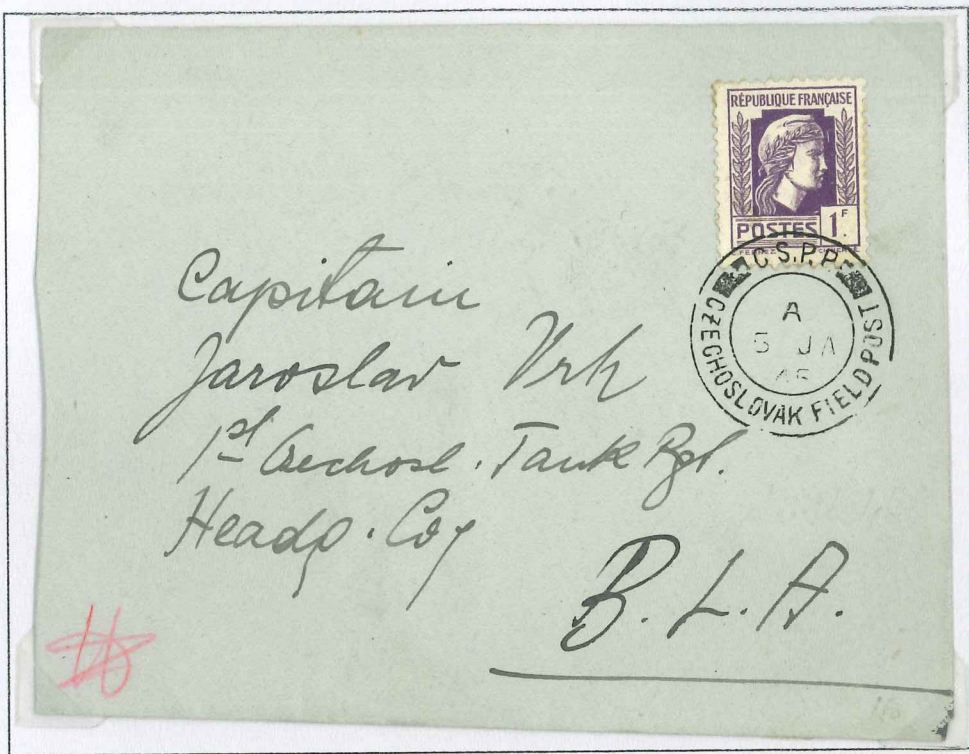 RÉPUBLIQUE FRANÇAISE
POSTES 1F
C.S.P.P.
A
5 JA
45
CZECHOSLOVAK FIELD POST
Capitain
Jaroslav Vrh
1st Czechosl. Tank Rgt.
Headq. Coy
B.L.A.